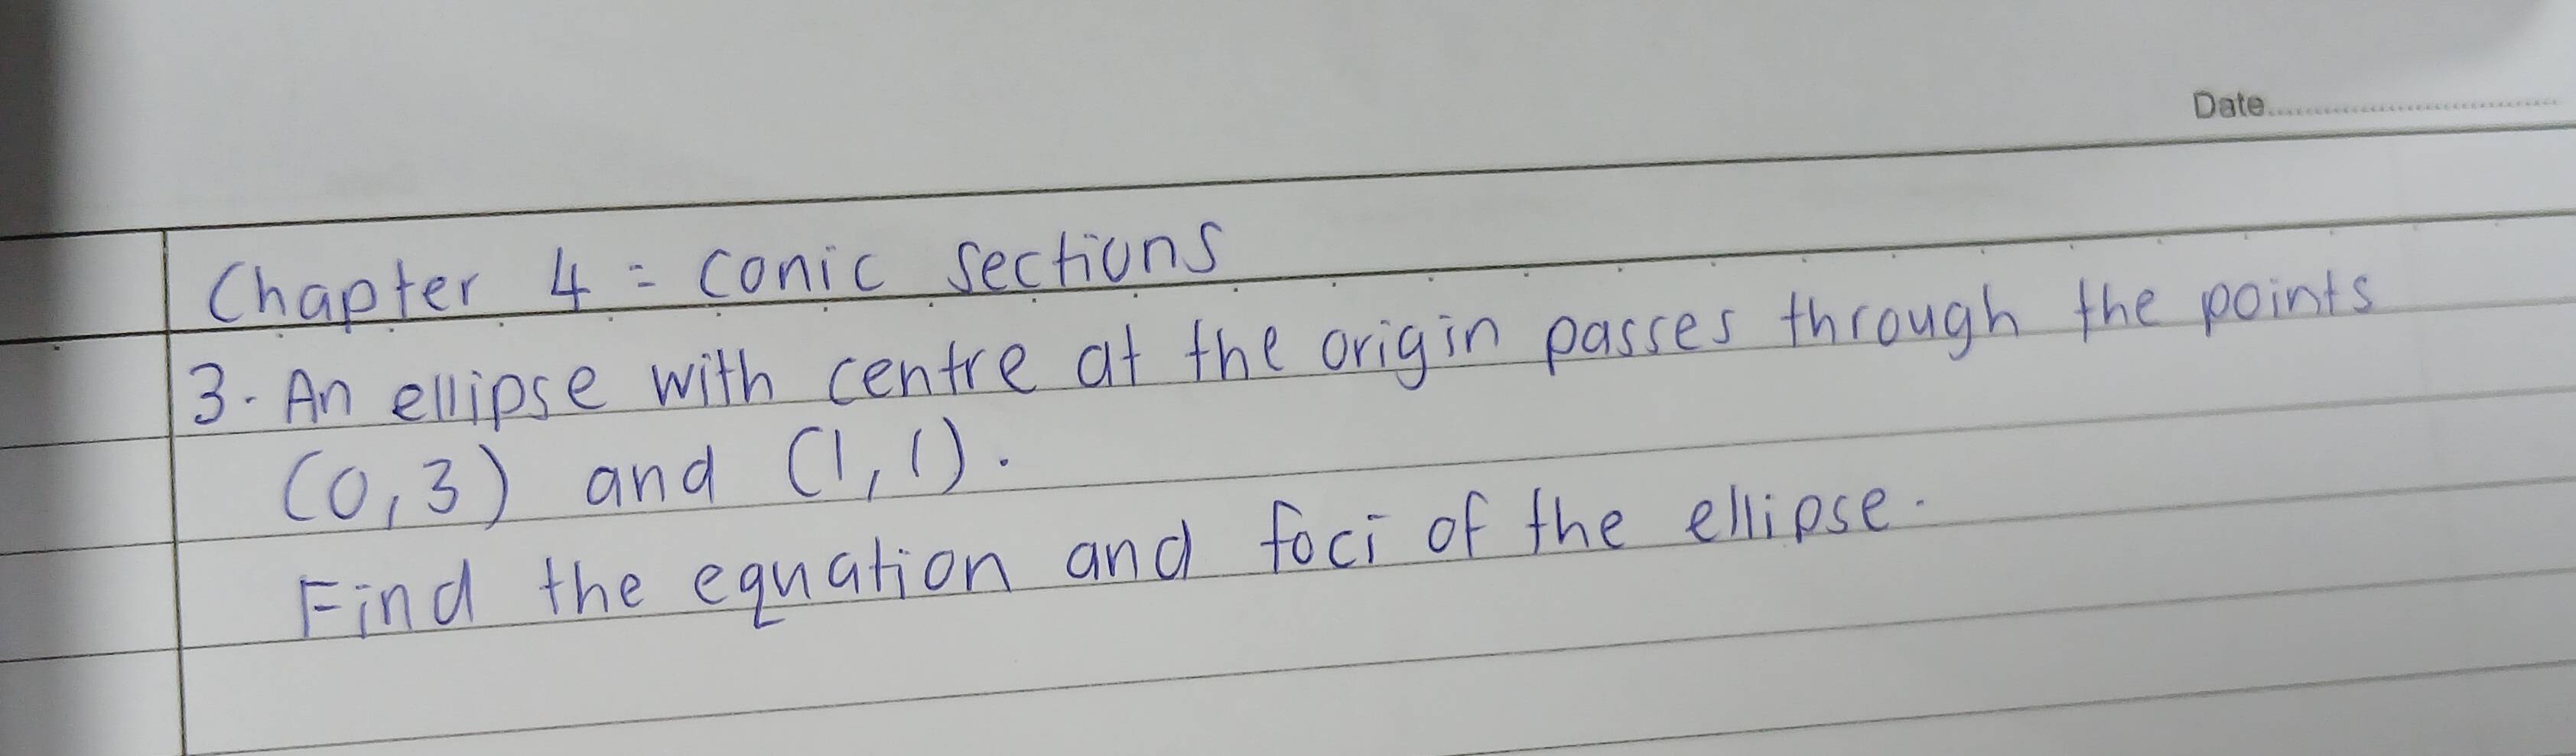 Date
Chapter 4 = conic sections
3. An ellipse with centre at the origin passes through the points
(0,3) and (1,1).
Find the equation and foci of the ellipse.